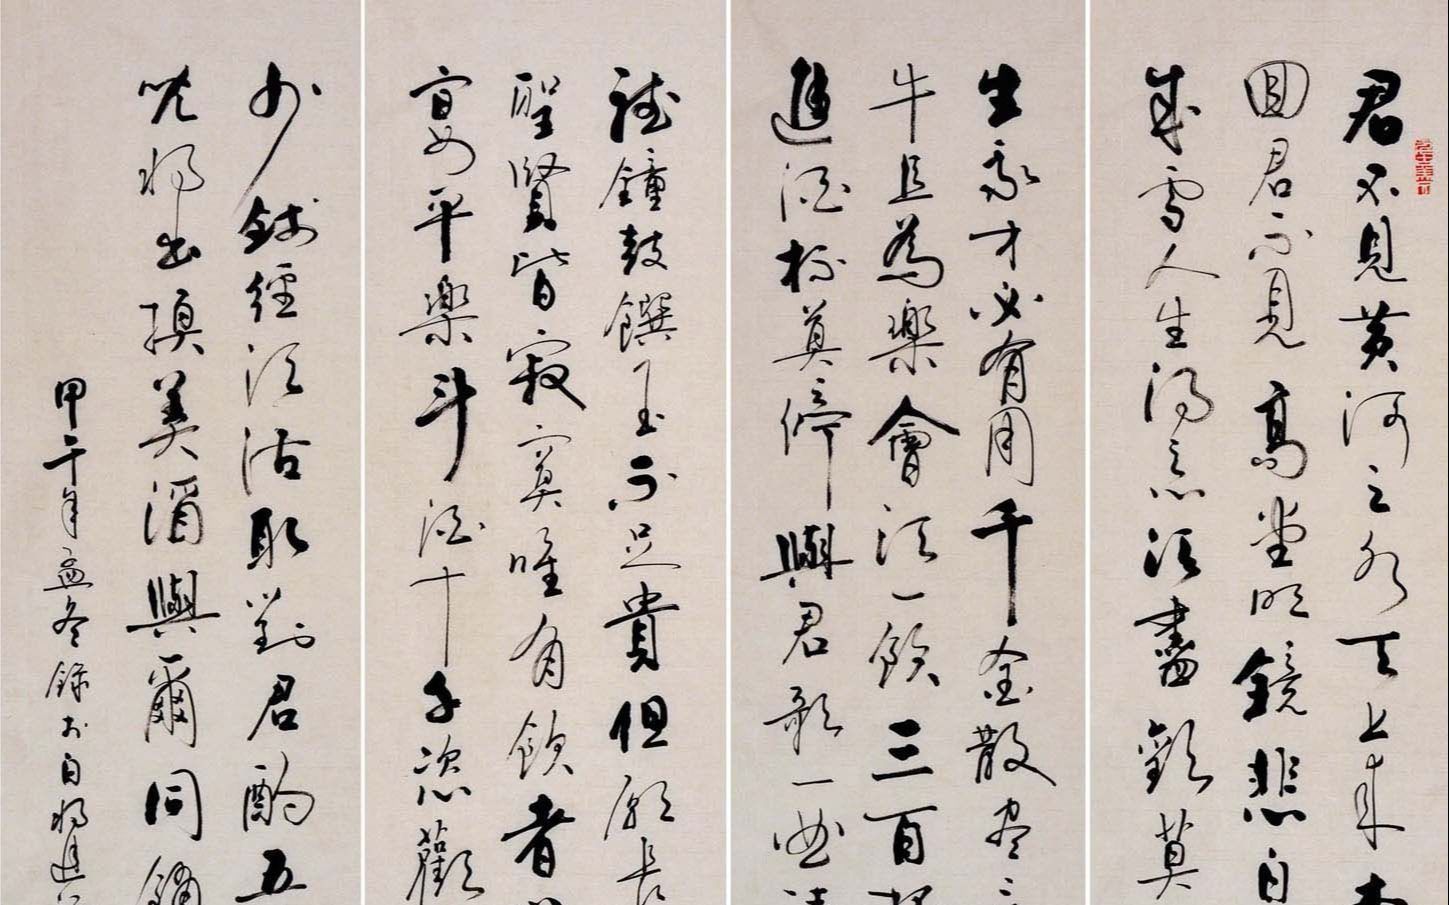 君不見黃河之水天上來
回君不見高堂明鏡悲白
成雪人生得意須盡歡莫
生我才必有用千金散盡
牛且為樂會須一飲三百
進酒杯莫停與君歌一曲
鐘鼓饌玉不足貴但願長
聖賢皆寂寞唯有飲者
宴平樂斗酒十千恣歡
少錢徑須沽取對君酌五
兒將出換美酒與爾同銷
甲午年孟冬錄太白將進